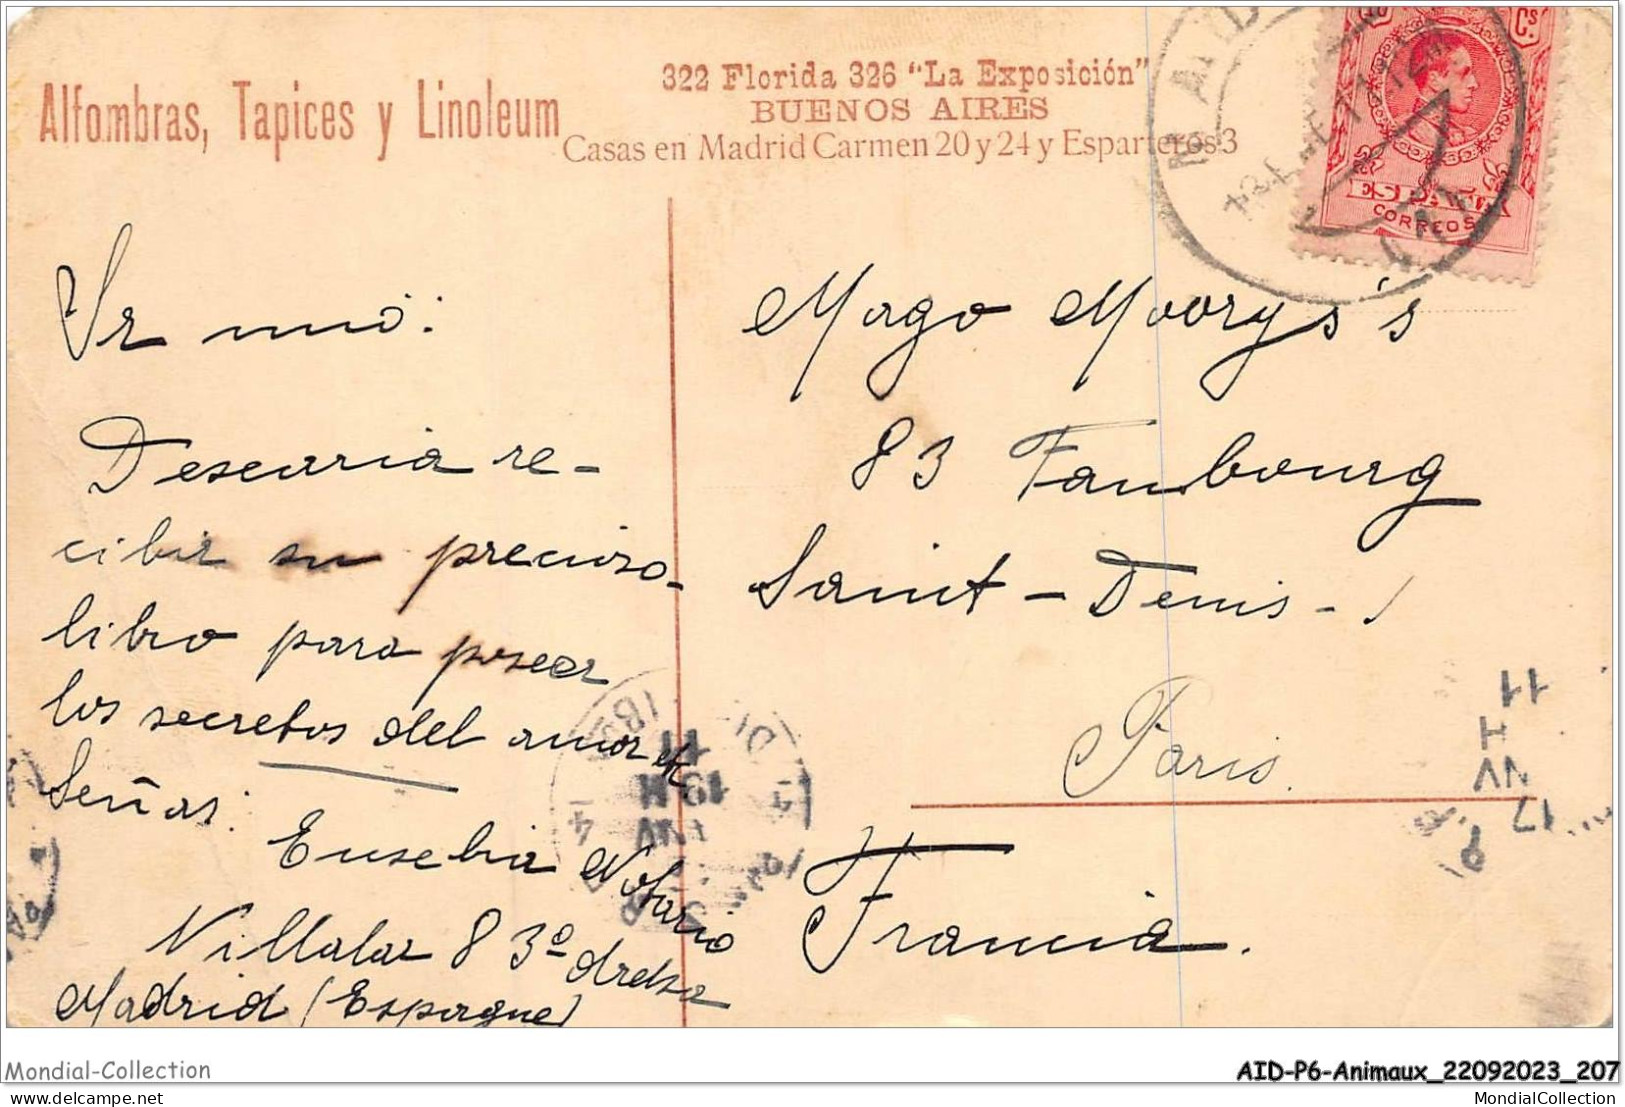 Alfombras, Tapices y Linoleum
322 Florida 326 "La Exposición"
BUENOS AIRES
Casas en Madrid Carmen 20 y 24 y Esparteros 3
MADRID
Cs.
ESPAÑA
CORREOS
Sr mio:
Desearia re-
cibir su precioso
libro para poseer
los secretos del amor
Señas:
Eusebia Notario
Villalar 8 3º drcha
Madrid (Espagne)
Mago Moorys's
83 Faubourg
Saint-Denis-
Paris.
Francia.
11
H
NV
17
Mondial-Collection
AID-P6-Animaux_22092023_207
MondialCollection.com